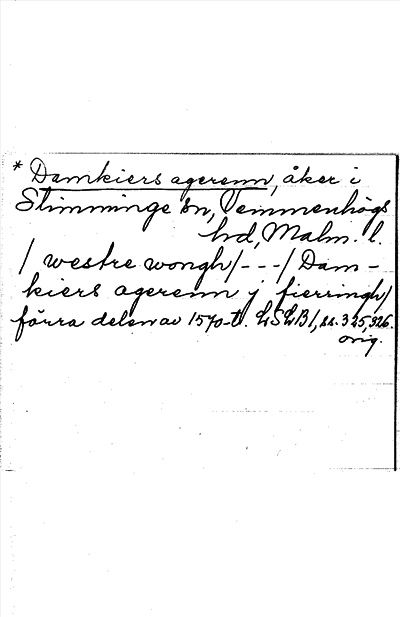 * Damkiers agerenn, åker i
Slimminge sn, Vemmenhögs
hd, Malm. l.
/ westre wongh/---/ Dam-
kiers agerenn j fierringh/
förra delen av 1570-t. LSLB 1, ss. 325, 326.
orig.